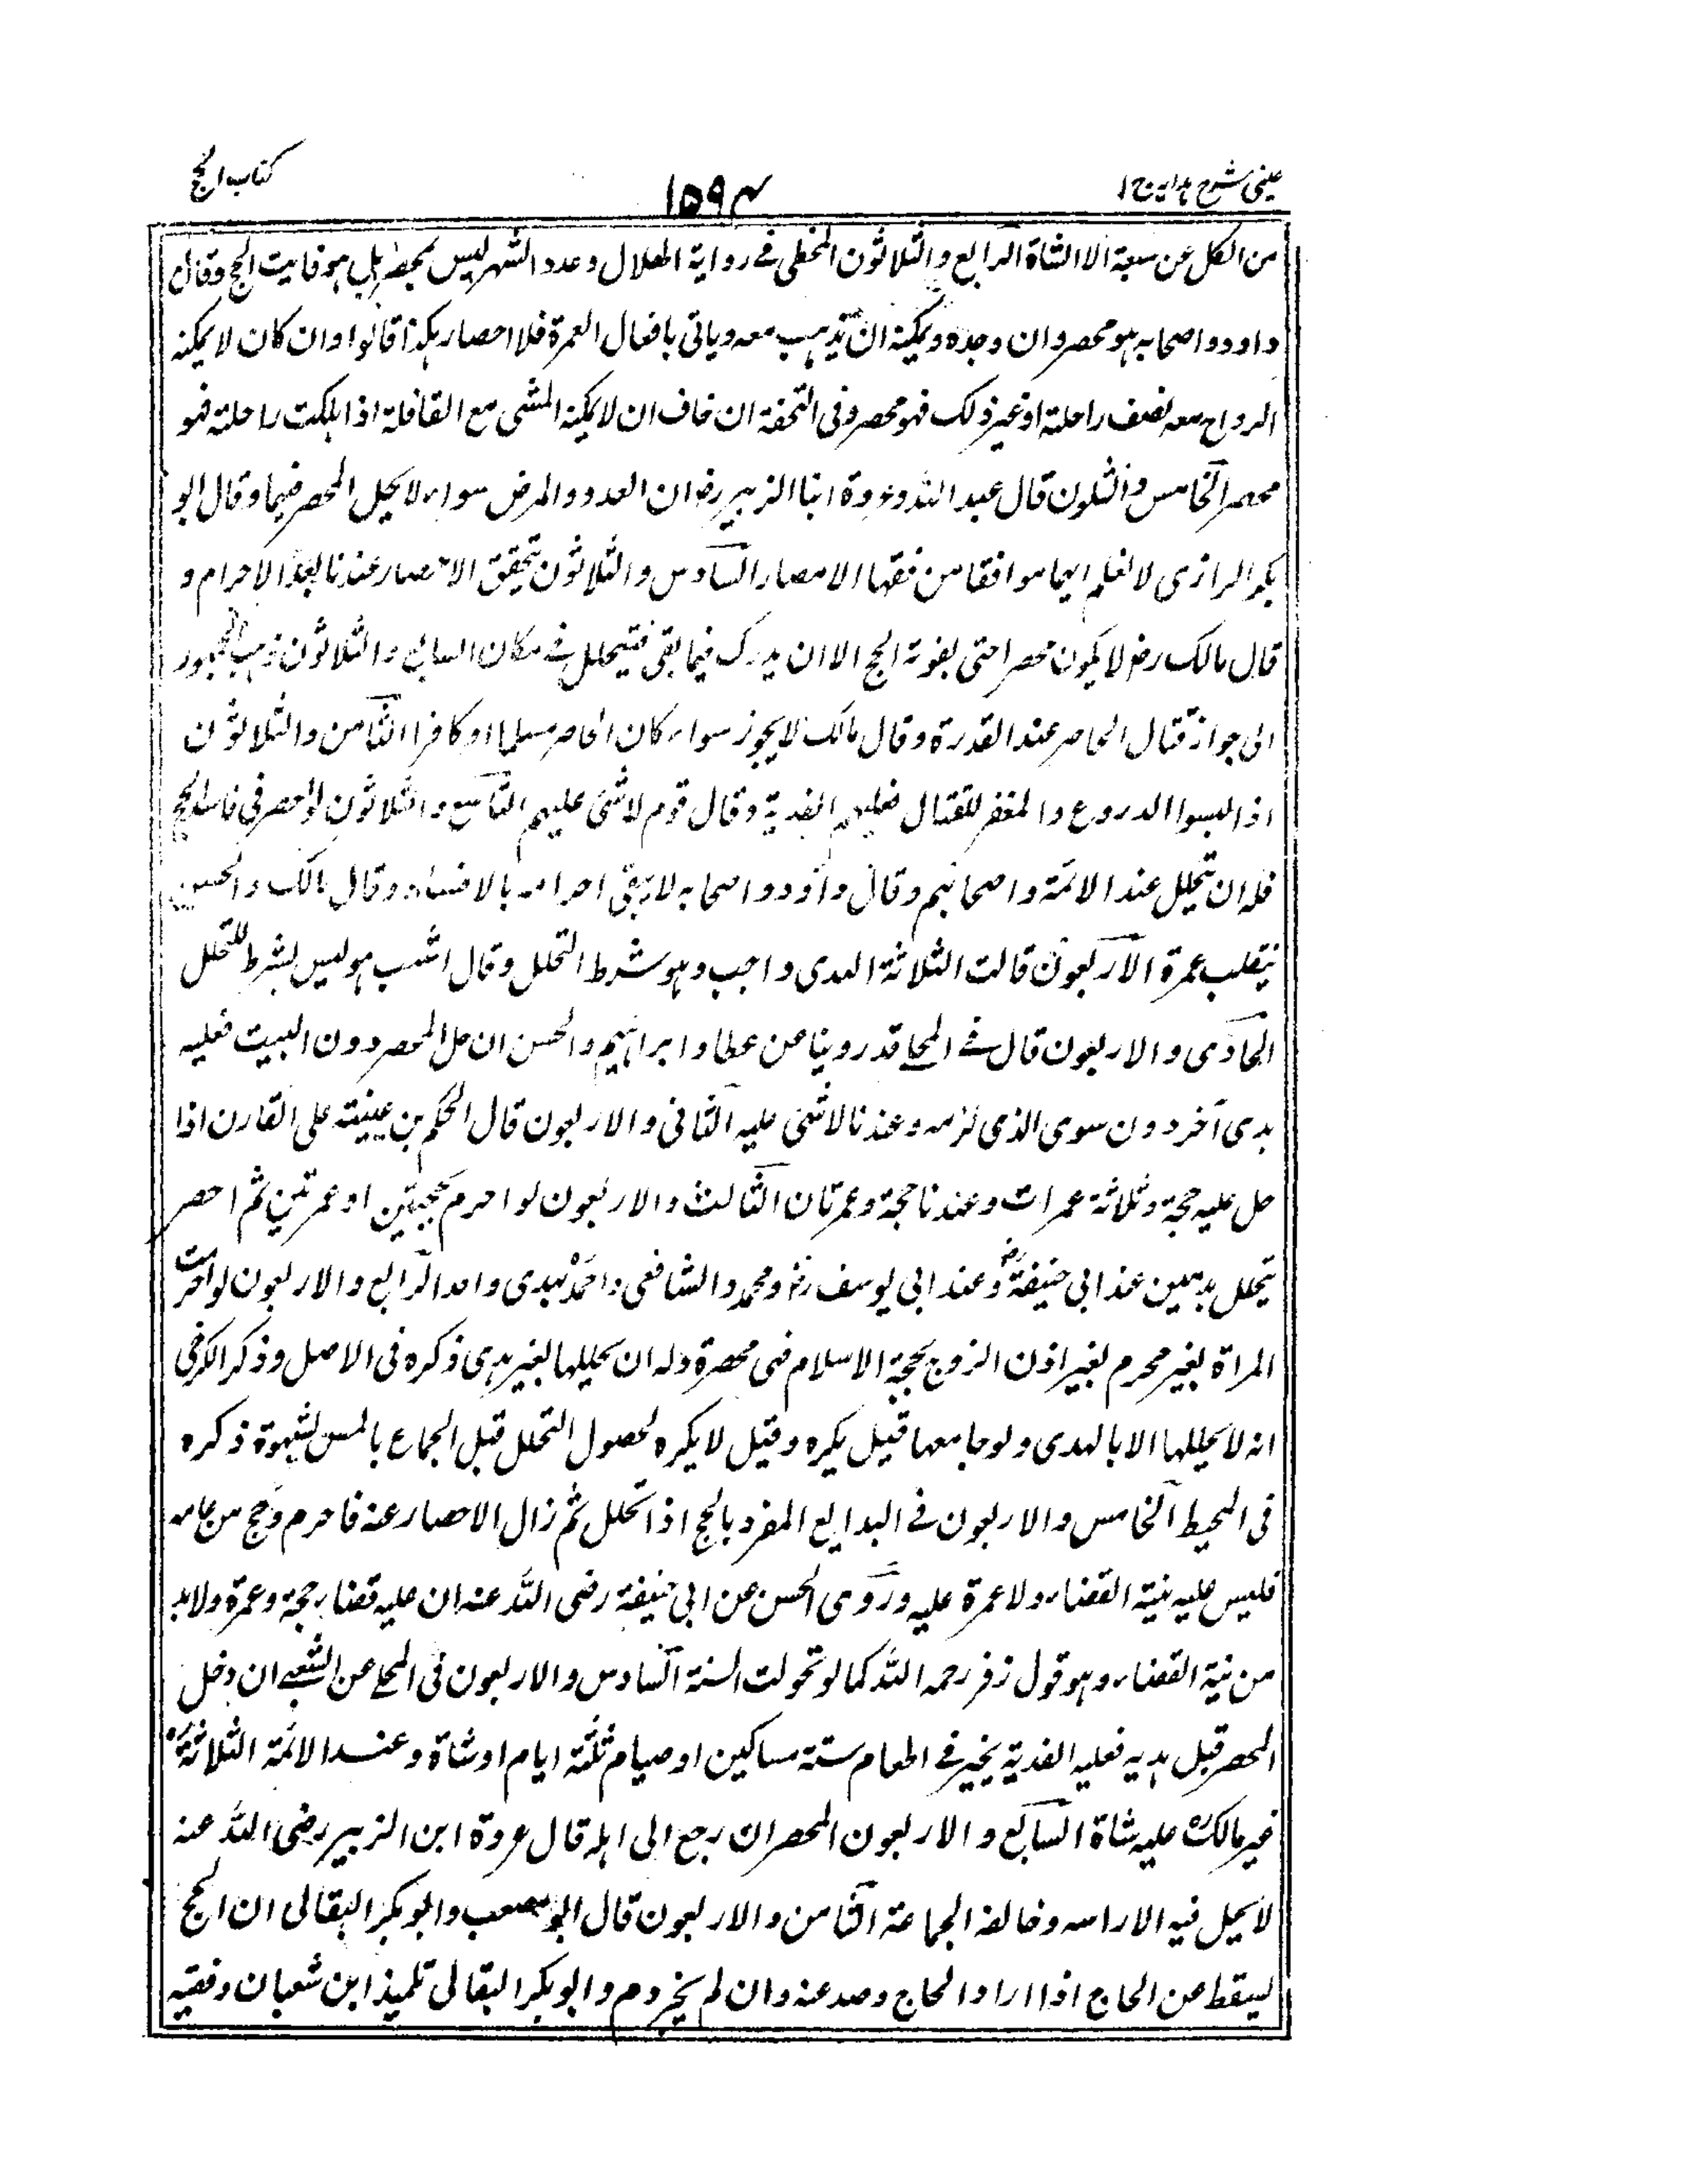 عينى شرح هدايه ج ١
١٥٩٤
كتاب الحج
من الكل عن سبعة الا الشاة الرابع والثلاثون المخطى فى رواية الهلال وعدد الشهر ليس بمحصر بل هو فايت الحج وقال
داود واصحابه هو محصر وان وجده ويمكنه ان يذهب معه وياتى بافعال العمرة فلا احصار هكذا قالوا وان كان لا يمكنه
الرواح معه لضعف راحلة او غير ذلك فهو محصر وفى التحفة ان خاف ان لا يمكنه المشى مع القافلة اذا هلكت راحلة فهو
محصر الخامس والثلون قال عبد الله وعروة ابنا الزبير رض ان العدو والمرض سواء لا يحل المحصر فيما وقال ابو
بكر الرازى لا نعلم لهما موافقا من فقها الامصار السادس والثلاثون يتحقق الاحصار عندنا بعد الاحرام و
قال مالك رض لا يكون محصرا حتى يفوته الحج الا ان يدرك فيما بقى فيتحلل فى مكان السابع والثلاثون ذهب الجمهور
الى جواز قتال الحاصر عند القدرة وقال مالك لا يجوز سواء كان الحاصر مسلما او كافرا الثامن والثلاثون
اذا لبسوا الدروع والمغفر للقتال فعليهم الفدية وقال قوم لا شى عليهم التاسع والثلاثون لو احصر فى فاسد الحج
فله ان يتحلل عند الائمة واصحابهم وقال داود واصحابه لا يبقى احرامه بالافساد وقال مالك والحسن
ينقلب عمرة الاربعون قالت الثلاثة الهدى واجب وهو شرط التحلل وقال اشهب هو ليس بشرط للتحلل
الحادى والاربعون قال فى المحلى قد روينا عن عطا وابراهيم والحسن ان حل المحصر دون البيت فعليه
هدى آخر دون سوى الذى لزمه وعندنا لا شى عليه الثانى والاربعون قال الحكم بن عيينة على القارن اذا
حل عليه حجة وثلاثة عمرات وعندنا حجة وعمرتان الثالث والاربعون لو احرم بحجتين او عمرتين ثم احصر
يتحلل بهديين عند ابى حنيفة رض وعند ابى يوسف رض ومحمد والشافعى واحمد بهدى واحد الرابع والاربعون لو احرمت
المراة بغير محرم بغير اذن الزوج بحجة الاسلام فهى محصرة وله ان يحللها بغير هدى ذكره فى الاصل وذكر الكرخى
انه لا يحللها الا بالهدى ولو جامعها قيل يكره وقيل لا يكره لحصول التحلل قبل الجماع بالمس لشهوة ذكره
فى المحيط الخامس والاربعون فى البدايع المفرد بالحج اذا تحلل ثم زال الاحصار عنه فاحرم وحج من عامه
فليس عليه نية القضاء ولا عمرة عليه وروى الحسن عن ابى حنيفة رضى الله عنه ان عليه قضاء حجة وعمرة ولا بد
من نية القضاء وهو قول زفر رحمه الله كما لو تحولت السنة السادس والاربعون فى المحلى عن الشعبى ان دخل
المحصر قبل هديه فعليه الفدية يخير فى اطعام ستة مساكين او صيام ثلثة ايام او شاة وعند الائمة الثلاثة
غير مالك رح عليه شاة السابع والاربعون المحصر ان رجع الى اهله قال عروة ابن الزبير رضى الله عنه
لا يحل فيه الا راسه وخالفه الجماعة الثامن والاربعون قال ابو مصعب وابو بكر البقالى ان الحج
ليسقط عن الحاج اذا اراد الحاج وصد عنه وان لم يخر دم وابو بكر البقالى تلميذ ابن شعبان وفقيه